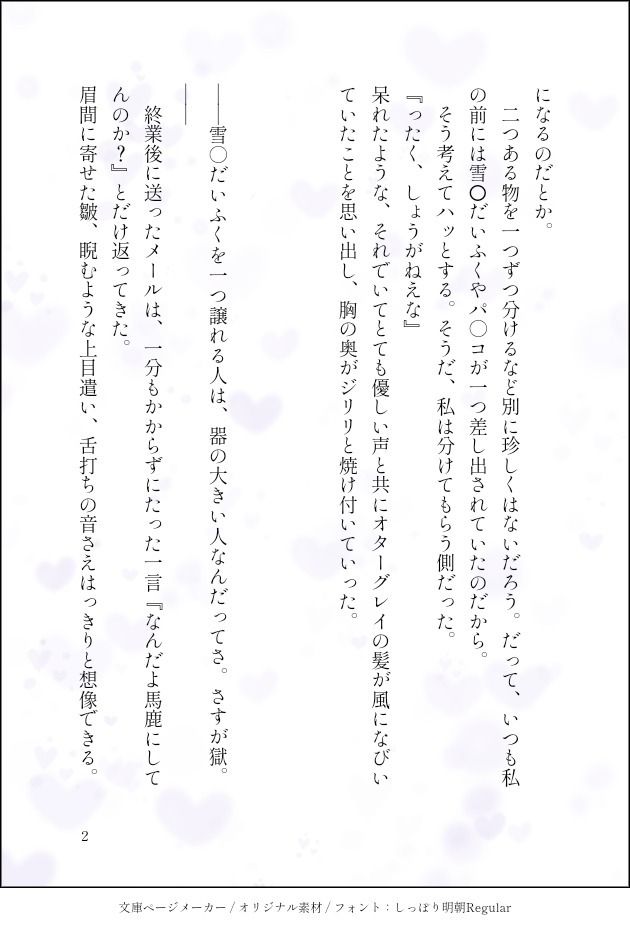 になるのだとか。
　二つある物を一つずつ分けるなど別に珍しくはないだろう。だって、いつも私
の前には雪〇だいふくやパ〇コが一つ差し出されていたのだから。
　そう考えてハッとする。そうだ、私は分けてもらう側だった。
『ったく、しょうがねえな』
呆れたような、それでいてとても優しい声と共にオターグレイの髪が風になびい
ていたことを思い出し、胸の奥がジリリと焼け付いていった。
――雪〇だいふくを一つ譲れる人は、器の大きい人なんだってさ。さすが獄。
――
　終業後に送ったメールは、一分もかからずにたった一言『なんだよ馬鹿にして
んのか？』とだけ返ってきた。
眉間に寄せた皺、睨むような上目遣い、舌打ちの音さえはっきりと想像できる。
2
文庫ページメーカー / オリジナル素材 / フォント：しっぽり明朝Regular